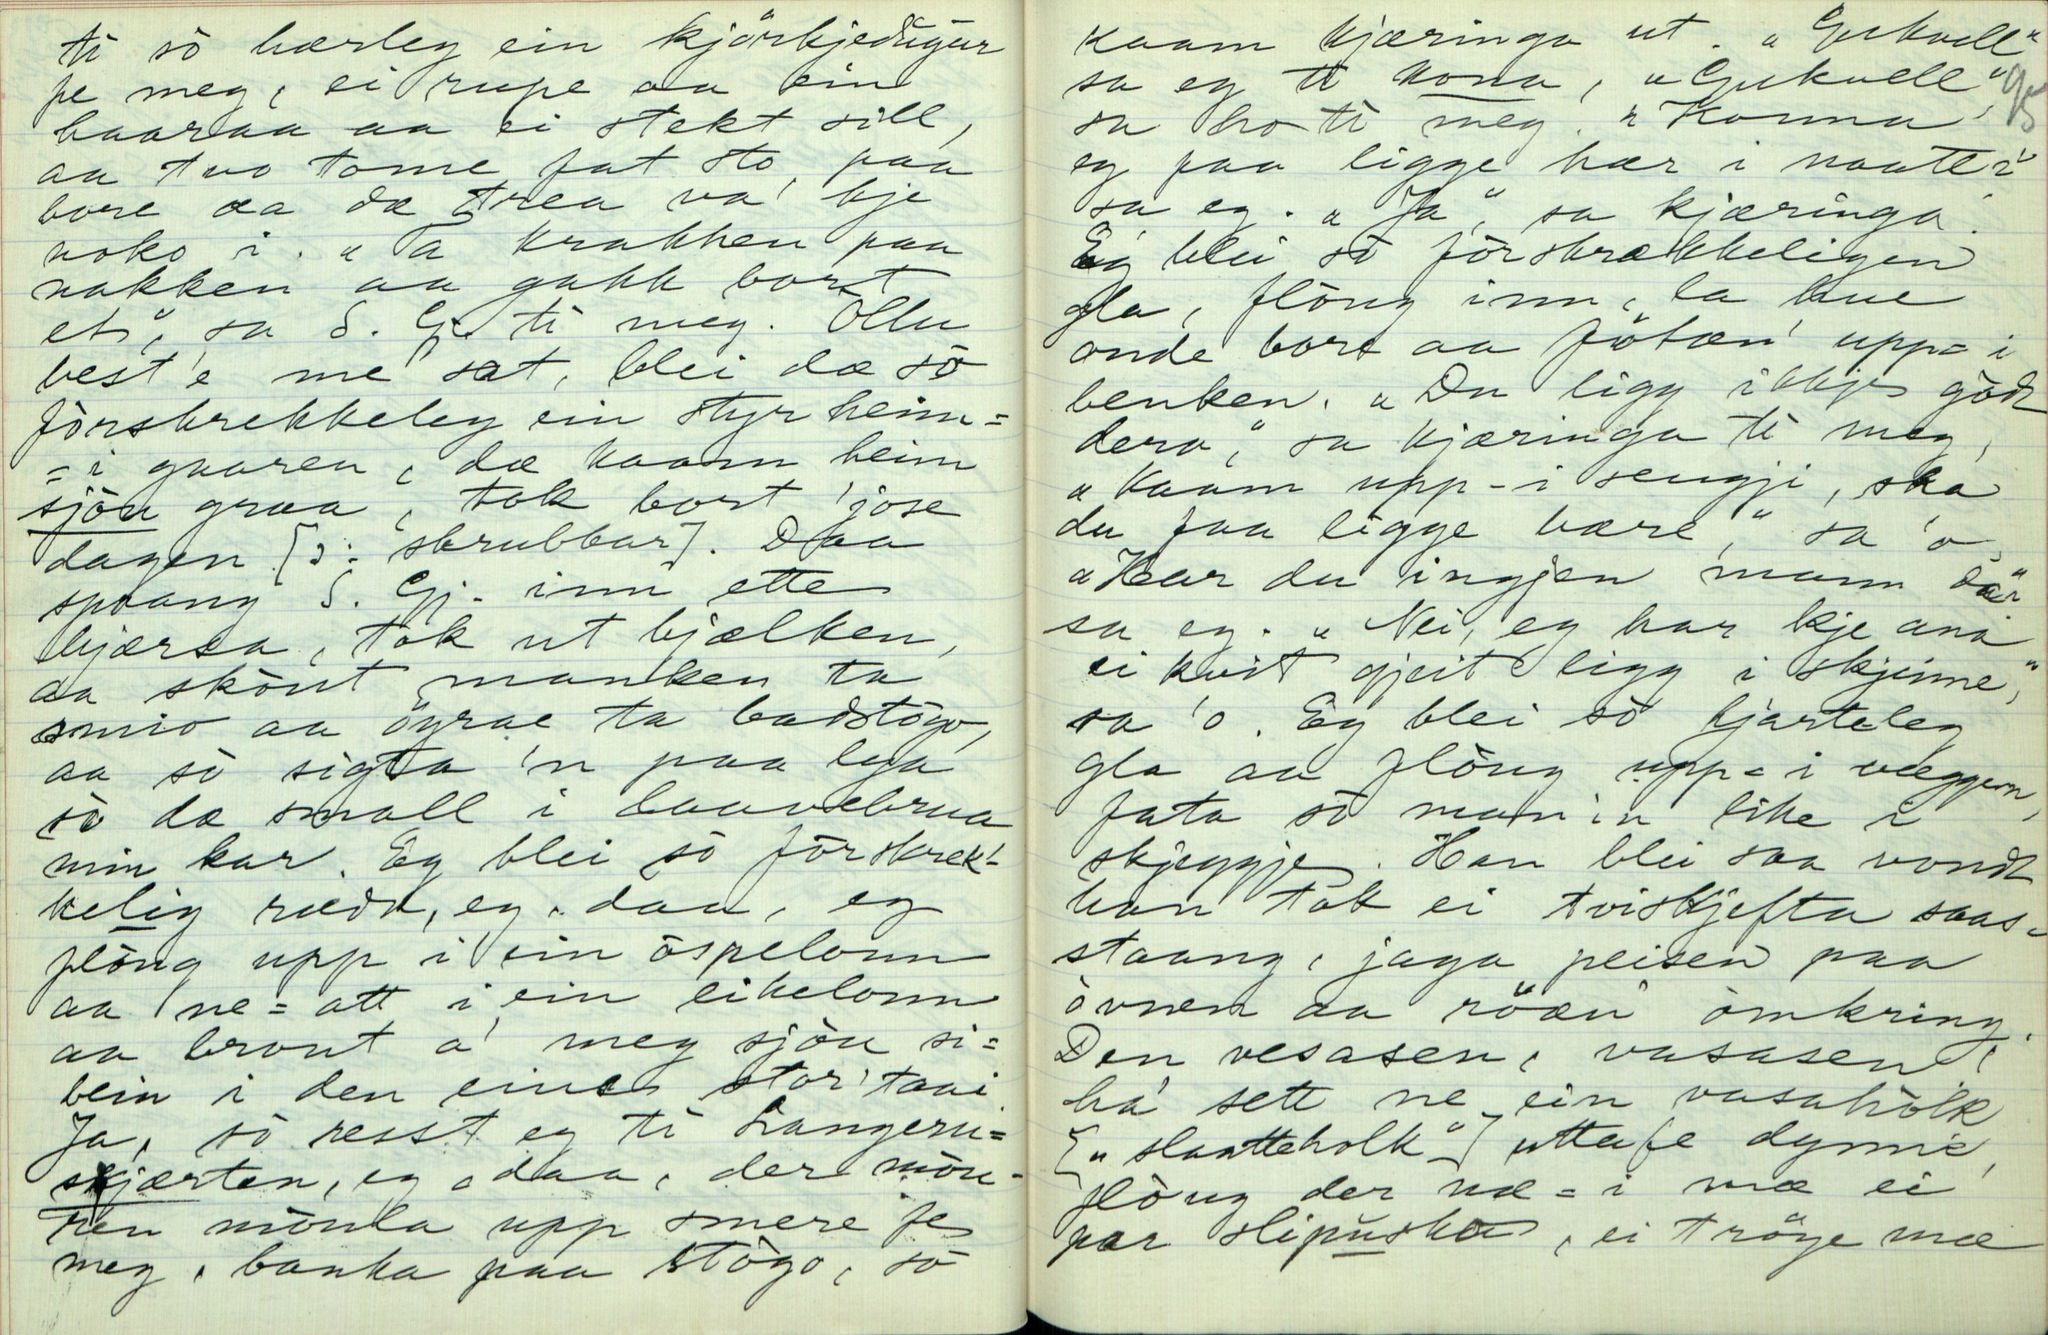 ti sò hærleg ein kjörkjedugur
fe meg, ei rupe aa ein
baaraa aa ei stekt sill,
aa tvo tome fat sto paa
bore aa dæ trea va' kje
noko i. „Ta krakken paa
nakken aa gakk bort
et", sa S. Gj. ti meg. Ollu
best'e me sat, blei dæ sò
förskrekkeleg ein styr heim=
=i gaarea, dæ kaam heim
sjòu graa, tok bort 'jose
dagen [ɔ: skrubbar]. Daa
spraang S. Gj. inn ette
kjærsa, tok ut bjælken,
aa skòut manken ta
smio aa öyrae ta badstògo,
aa sò sigta 'n paa lya
sò dæ small i laavebrua
min kar. Eg blei sò förskrek-
kelig rædd, eg, daa, eg
flòug upp i ein òspelonn
aa ne=att i ein eikelonn
aa brout a' meg sjòu si=
bein i den eine stor'taai.
Ja, sò resst eg ti Langeru=
kjærten, eg, daa, der mòu-
ren mòula upp smere fe
meg, banka paa stògo, sò
kaam kjæringa ut. „Gukvell"
sa eg ti kona, „Gukvell"
95
sa ho ti meg. „Konna
eg faa ligge hær i naatt?"
sa eg. „Ja," sa kjæringa.
Eg blei sò förskrækkeligen
gla, flòug inn, la hue
onde bore aa fötæn' upp=i
benken. „Du ligg ikkje gòdt
dera," sa kjæringa ti meg,
„Kaam upp-i sengji, ska
du faa ligge bære," sa 'o,
„Har du ingjen mann da?"
sa eg. „Nei, eg har kje ana
ei kvit gjeit ligg i skjinne,"
sa 'o. Eg blei sò hjarteleg
gla aa flòug upp=i væggjen,
fata sò mann'in like i
skjeggje. Han blei saa vondt
han tok ei tviskjefta saas-
staang, jaga peisen paa
òvnen aa röæn omkring.
Den vesasen, vasasen,
ha' sett ne ein vasahòlk
[„slaatteholk"] uttafe dynne,
flòug der næ=i mæ ei
par slipuska, ei tröye mæ